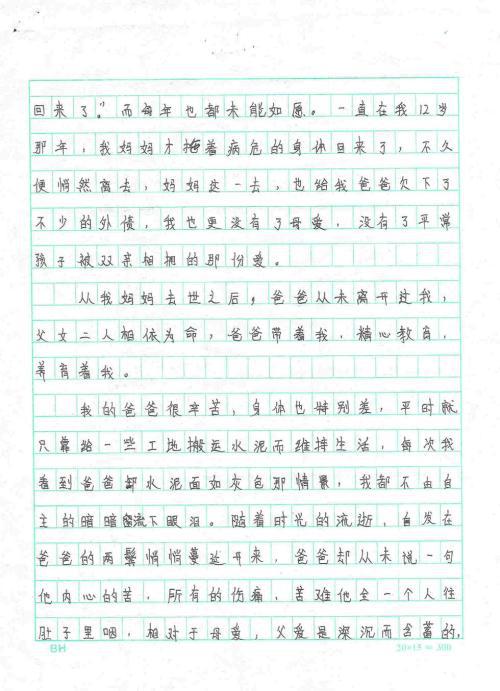 回来了。”而每年也都未能如愿。一直在我12岁
那年，我妈妈才拖着病危的身体回来了，不久
便悄然离去，妈妈这一去，也给我爸爸欠下了
不少的外债，我也更没有了母爱，没有了平常
孩子被双亲相拥的那份爱。
从我妈妈去世之后，爸爸从未离开过我，
父女二人相依为命，爸爸带着我，精心教育，
养育着我。
我的爸爸很辛苦，身体也特别差，平时就
只靠给一些工地搬运水泥而维持生活，每次我
看到爸爸卸水泥面如灰色那情景，我都不由自
主的暗暗流下眼泪。随着时光的流逝，白发在
爸爸的两鬓悄悄蔓延开来，爸爸却从未说一句
他内心的苦，所有的伤痛，苦难他全一个人往
肚子里咽，相对于母爱，父爱是深沉而含蓄的，
BH
20×15＝300